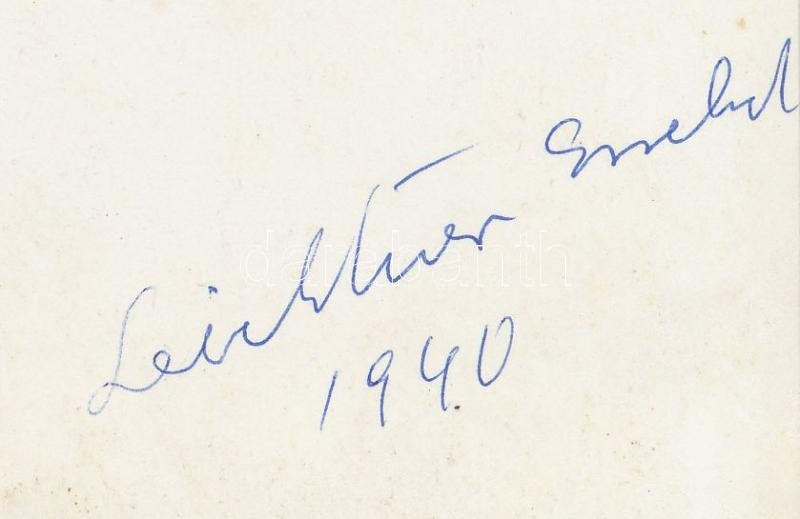 Leichtner
1940
darabanth